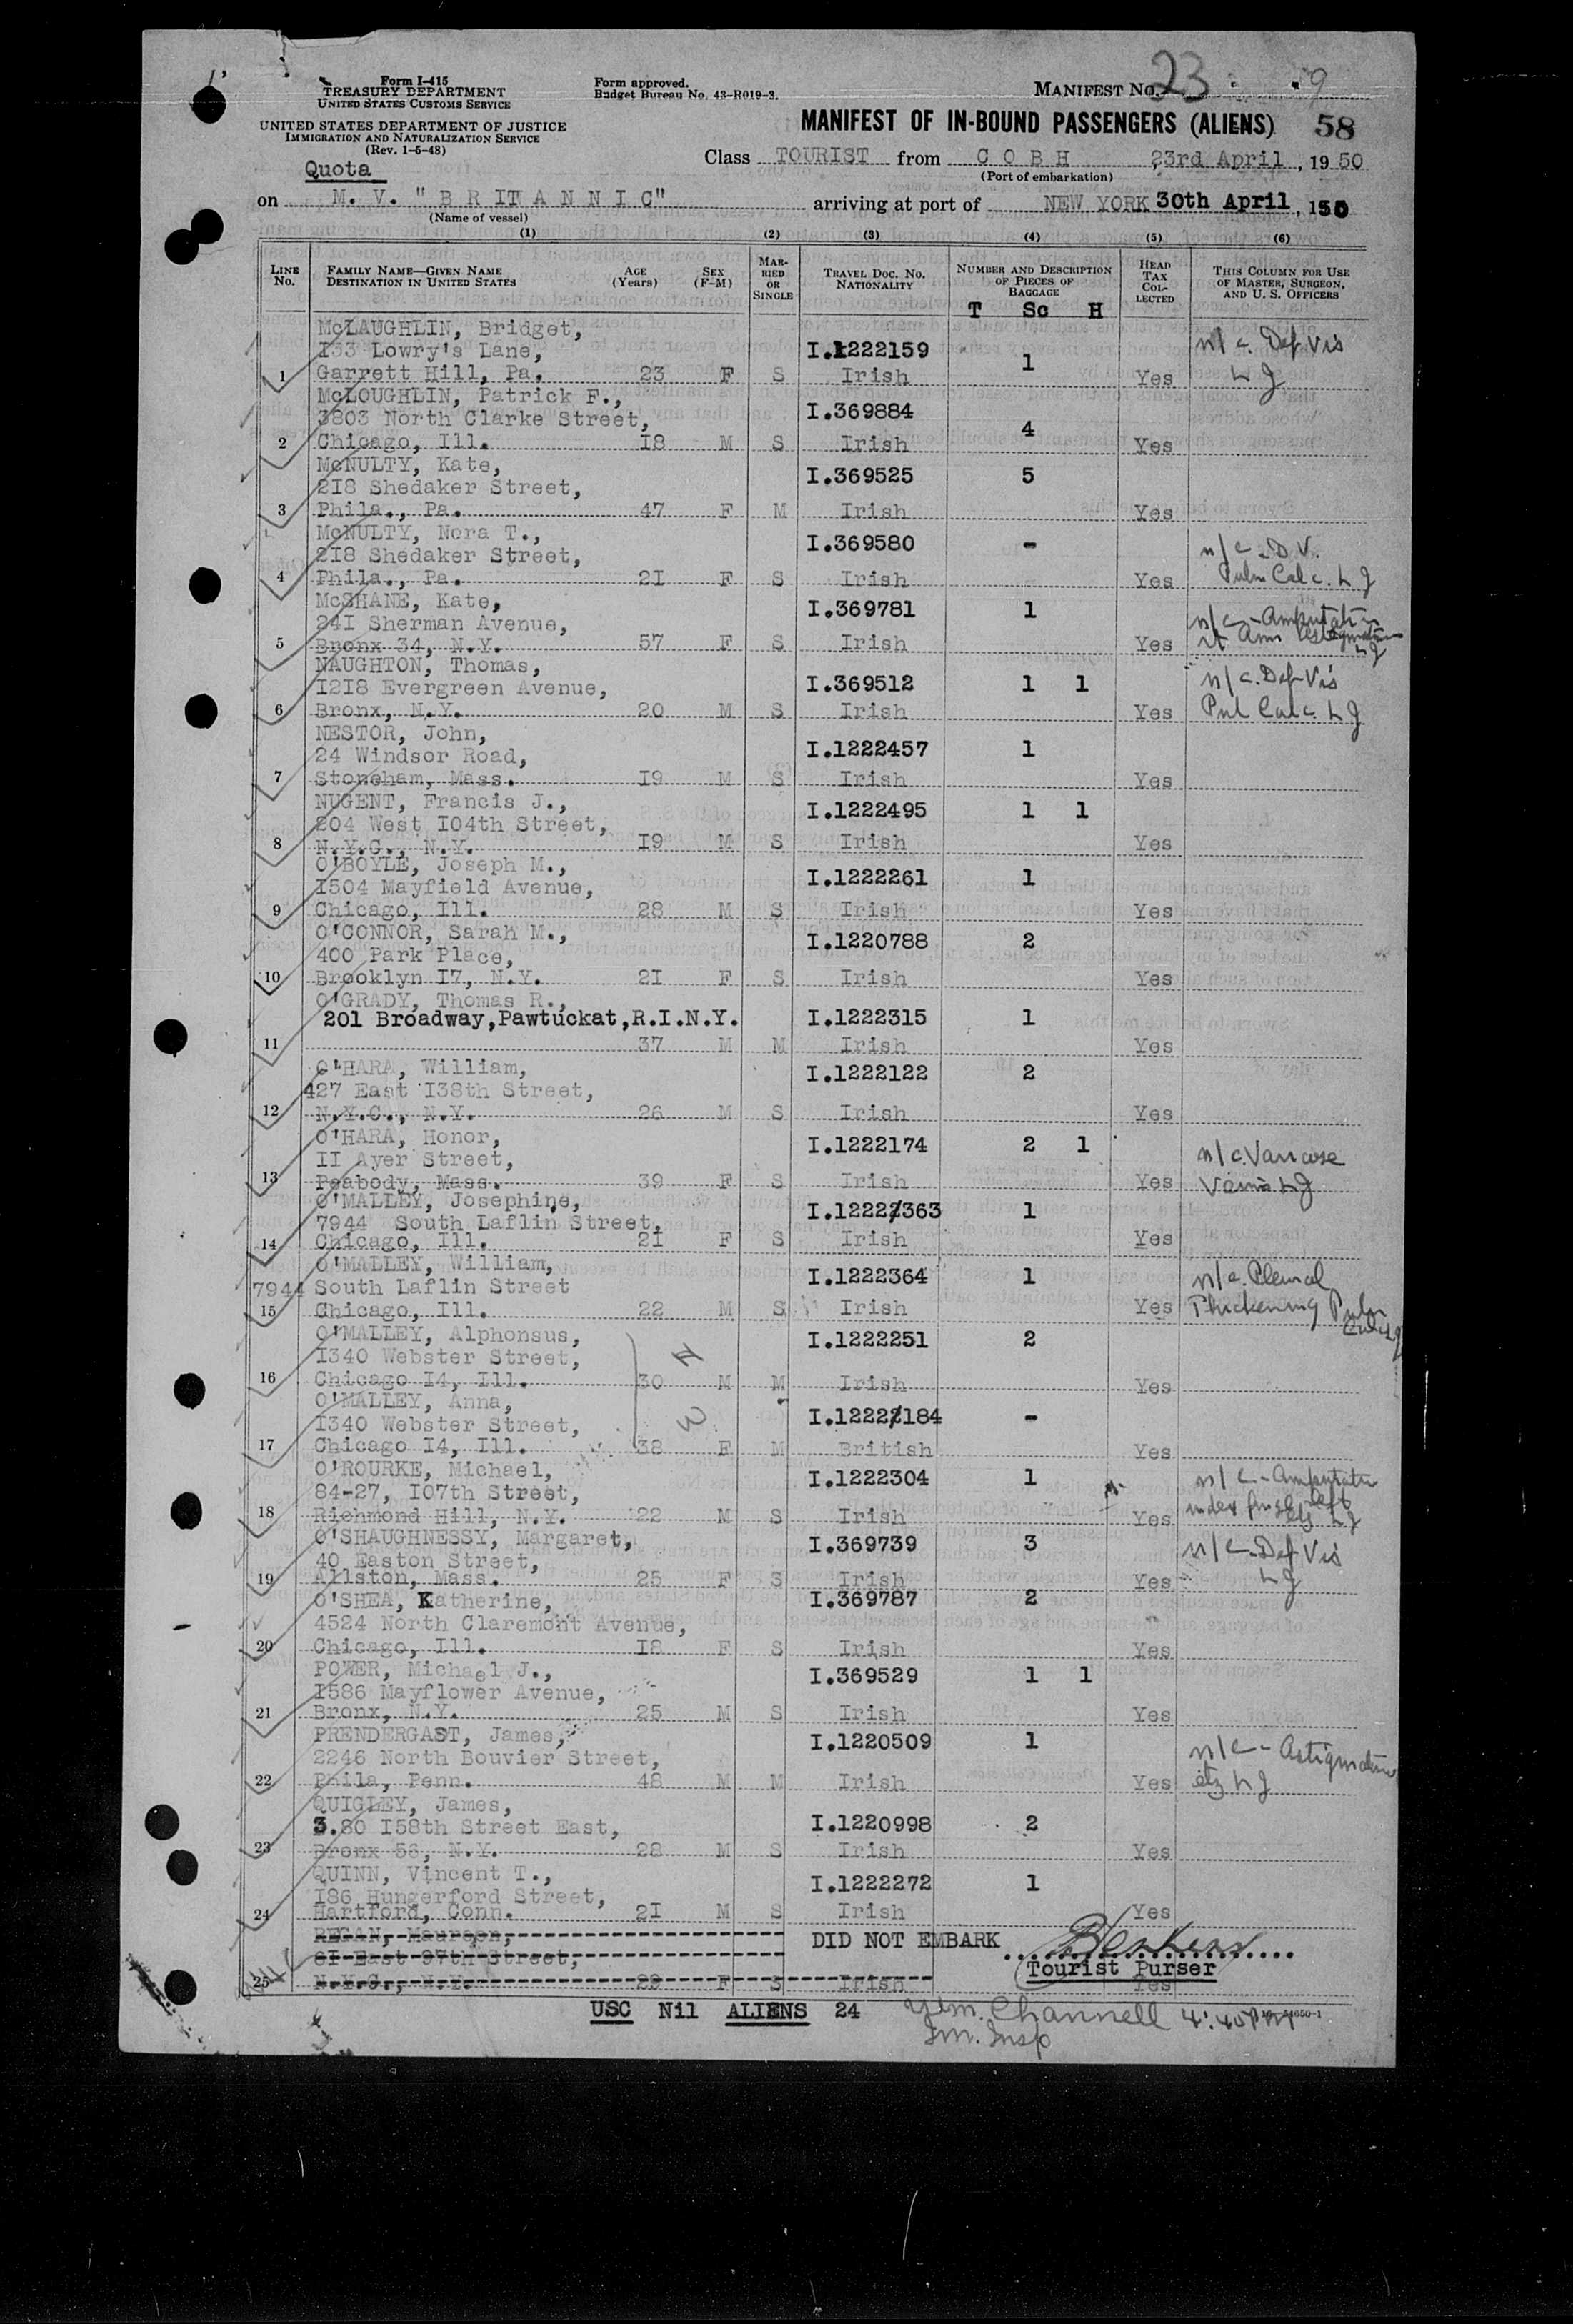 Form I-415
TREASURY DEPARTMENT
UNITED STATES CUSTOMS SERVICE
Form approved.
Budget Bureau No. 43-R019-3.
MANIFEST No. 23 9
UNITED STATES DEPARTMENT OF JUSTICE
IMMIGRATION AND NATURALIZATION SERVICE
(Rev. 1-5-48)
MANIFEST OF IN-BOUND PASSENGERS (ALIENS) 58
Quota
Class TOURIST from C O B H 23rd April, 1950
(Port of embarkation)
on M. V. "B R I T A N N I C" arriving at port of NEW YORK 30th April, 1950
(Name of vessel)
(1) (2) (3) (4) (5) (6)
LINE No. FAMILY NAME—GIVEN NAME DESTINATION IN UNITED STATES AGE (Years) SEX (F-M) MARRIED OR SINGLE TRAVEL DOC. No. NATIONALITY NUMBER AND DESCRIPTION OF PIECES OF BAGGAGE HEAD TAX COLLECTED THIS COLUMN FOR USE OF MASTER, SURGEON, AND U. S. OFFICERS
T Sc H
McLAUGHLIN, Bridget,
133 Lowry's Lane, I.1222159 1 n/c. Def Vis
1 Garrett Hill, Pa. 23 F S Irish Yes L J
McLOUGHLIN, Patrick F.,
3803 North Clarke Street, I.369884 4
2 Chicago, Ill. I8 M S Irish Yes
McNULTY, Kate,
2I8 Shedaker Street, I.369525 5
3 Phila., Pa. 47 F M Irish Yes
McNULTY, Nora T.,
2I8 Shedaker Street, I.369580 - n/c - D V.
4 Phila., Pa. 2I F S Irish Yes Pulm Calc. L J
McSHANE, Kate,
24I Sherman Avenue, I.369781 1 n/c - Amputation
5 Bronx 34, N.Y. 57 F S Irish Yes rt Arm Astigmatism L J
NAUGHTON, Thomas,
I2I8 Evergreen Avenue, I.369512 1 1 n/c. Def Vis
6 Bronx, N.Y. 20 M S Irish Yes Pul Calc. L J
NESTOR, John,
24 Windsor Road, I.1222457 1
7 Stoneham, Mass. I9 M S Irish Yes
NUGENT, Francis J.,
204 West I04th Street, I.1222495 1 1
8 N.Y.C., N.Y. I9 M S Irish Yes
O'BOYLE, Joseph M.,
I504 Mayfield Avenue, I.1222261 1
9 Chicago, Ill. 28 M S Irish Yes
O'CONNOR, Sarah M.,
400 Park Place, I.1220788 2
10 Brooklyn I7, N.Y. 2I F S Irish Yes
O'GRADY, Thomas R.,
201 Broadway,Pawtuckat,R.I.N.Y. I.1222315 1
11 37 M M Irish Yes
O'HARA, William, I.1222122 2
427 East I38th Street,
12 N.Y.C., N.Y. 26 M S Irish Yes
O'HARA, Honor, I.1222174 2 1
II Ayer Street, n/c. Varicose
13 Peabody, Mass. 39 F S Irish Yes Veins L J
O'MALLEY, Josephine,
7944 South Laflin Street, I.12222363 1
14 Chicago, Ill. 2I F S Irish Yes
O'MALLEY, William,
7944 South Laflin Street I.1222364 1 n/c. Pleural
15 Chicago, Ill. 22 M S Irish Yes Thickening Pulm Calc L J
O'MALLEY, Alphonsus, I.1222251 2
I340 Webster Street,
16 Chicago I4, Ill. 30 M M Irish Yes
O'MALLEY, Anna,
I340 Webster Street, I.12222184 -
17 Chicago I4, Ill. 38 F M British Yes
O'ROURKE, Michael, I.1222304 1 n/c - Amputation
84-27, I07th Street,
18 Richmond Hill, N.Y. 22 M S Irish Yes index finger left L J
O'SHAUGHNESSY, Margaret, I.369739 3 n/c - Def Vis
40 Easton Street,
19 Allston, Mass. 25 F S Irish Yes L J
O'SHEA, Katherine, I.369787 2
4524 North Claremont Avenue,
20 Chicago, Ill. I8 F S Irish Yes
POWER, Michael J., I.369529 1 1
I586 Mayflower Avenue,
21 Bronx, N.Y. 25 M S Irish Yes
PRENDERGAST, James, I.1220509 1
2246 North Bouvier Street, n/c - Astigmatism
22 Phila, Penn. 48 M M Irish Yes L J
QUIGLEY, James,
3.80 I58th Street East, I.1220998 2
23 Bronx 56, N.Y. 28 M S Irish Yes
QUINN, Vincent T.,
I86 Hungerford Street, I.1222272 1
24 Hartford, Conn. 2I M S Irish Yes
REGAN, Maureen, DID NOT EMBARK
6I East 97th Street, Tourist Purser
25 N.Y.C., N.Y. 29 F S Irish Yes
USC Nil ALIENS 24 Wm. Channell 4:40 PM
Im. Insp